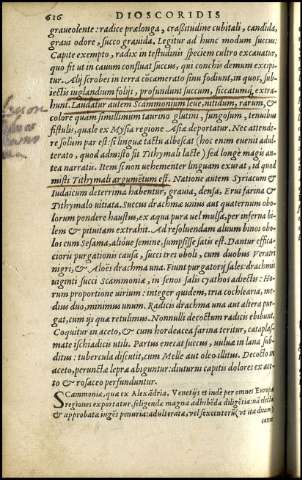 616 DIOSCORIDIS
graueolente: radice prælonga, crassitudine cubitali, candida,
graui odore, succo grauida. Legitur ad hunc modum succus:
Capite exempto, radix in testudinis speciem cultro excauatur,
quo fit ut in cauum confluat succus, qui conchis demum excipi-
tur. Alij scrobes in terra cōcamerato sinu fodiunt, in quos, sub-
iectis iuglandium folijs, profundunt succum, siccatumq́; extra-
hunt. Laudatur autem Scammonium leue, nitidum, rarum, &
colore quam simillimum taurino glutini, fungosum, tenuibus
fistulis, quale ex Mysia regione Asia deportatur. Nec attende-
re solum par est si lingua tactu albescat (hoc enim euenit adul-
terato, quod admisto fit Tithymali lacte) sed longè magis an-
tea narratis. Item si non uehementer linguam exurat, id quod
misti Tithymali argumētum est. Natione autem Syriacum &
Iudaicum deterrima habentur, grauia, densa, Erui farina &
Tithymalo uitiata. Succus drachmæ unius aut quaternûm obo-
lorum pondere haustus, ex aqua pura uel mulsa, per inferna bi-
lem & pituitam extrahit. Ad resoluendam aluum binos obo-
los cum Sesama, alióue semine, sumpsisse satis est. Dantur effica-
cioris purgationis causa, succi tres oboli, cum duobus Veratri
nigri, & Aloës drachma una. Fiunt purgatorij sales: drachmis
uiginti succi Scammonia, in senos salis cyathos adiectis: ui-
rium proportione uirium: integer quidem, tria cochlearia, me-
dius duo, minimus unum. Radicis drachma una aut altera pur-
gat, cum ijs qua retulimus. Nonnulli decoctum radicis ebibunt.
Coquitur in aceto, & cum hordeacea farina teritur, cataplas-
mate ischiadicis utili. Partus enecat succus, uulua in lana sub-
ditus: tubercula discutit, cum Melle aut oleo illitus. Decocto in
aceto, perunctæ lepræ abiguntur: diuturni capitis dolores ex ace-
to & rosaceo perfunduntur.
Scammonia, quæ ex Alexādria, Venetijs et inde per omnes Europæ
regiones exportatur, seligenda magna adhibēda diligētia nā nitida
& approbata ingēs penuria: adulterata, uel